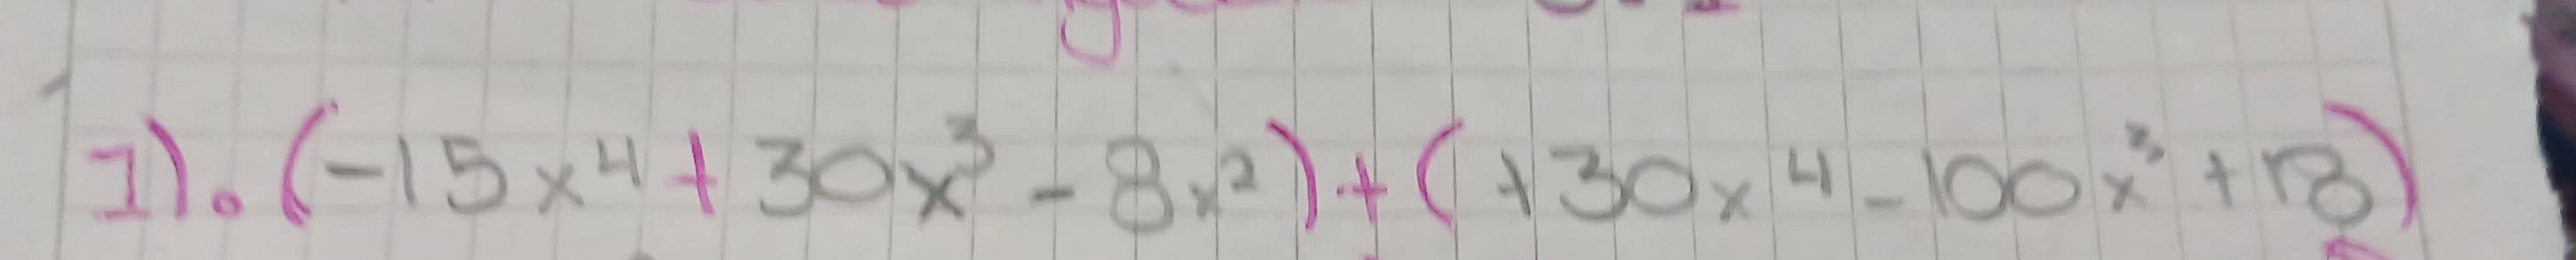 1). (-15x⁴ + 30x³ - 8x²) + (+30x⁴ - 100x³ + 18)